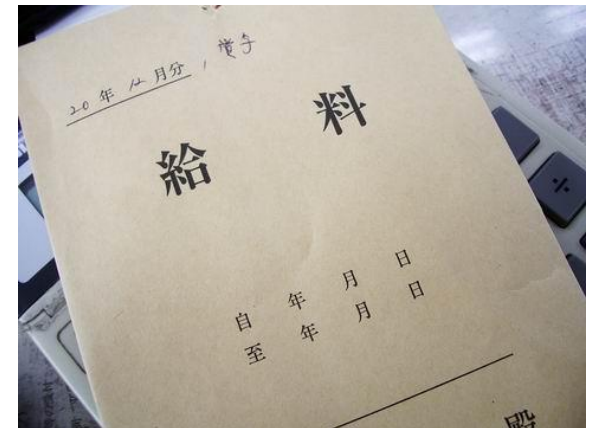 20年12月分，賞与
給料
自 年 月 日
至 年 月 日
殿
÷